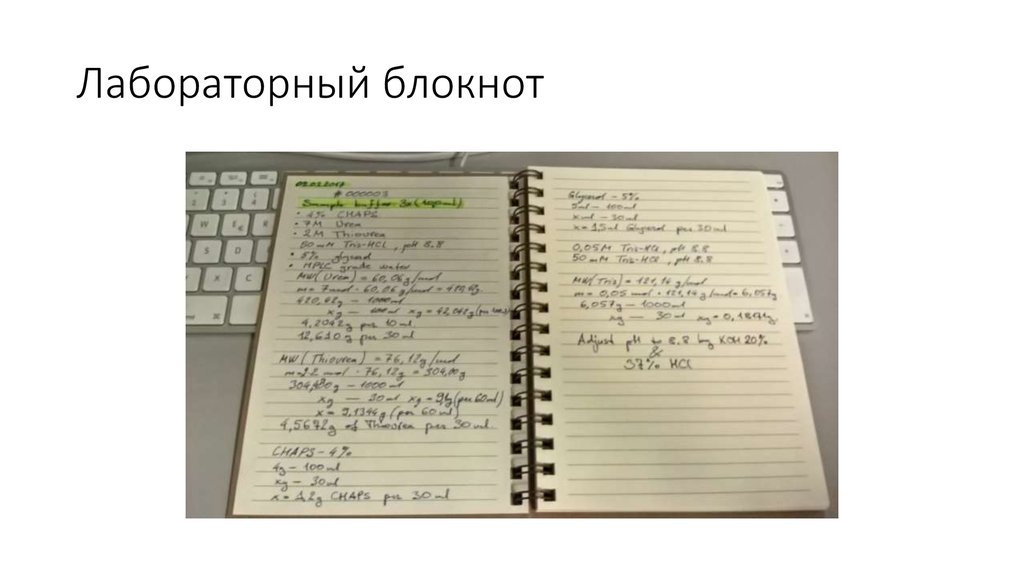 Лабораторный блокнот
02.02.2017
# 000003
Sample buffer 3x (100ml)
• 4% CHAPS
• 7M Urea
• 2M Thiourea
50 mM Tris-HCl, pH 8.8
• 5% glycerol
• HPLC grade water
MW(Urea) = 60,06 g/mol
m = 7mol · 60,06 g/mol = 420,42g.
420,42g — 1000ml
xg — ml xg = 42,042g (per
4,2042g per 10 ml
12,6 g per 30 ml
MW (Thiourea) = 76,12g/mol
m = 2 mol · 76,12g = g
g — 1000 ml
xg — 30 ml xg = (per 60ml)
x = 9,1344g (per 60 ml)
4,5672g of Thiourea per 30 ml.
CHAPS - 4%
4g — 100ml
xg — 30ml
x = 1,2g CHAPS per 30 ml
Glycerol - 5%
5ml — 100ml
x ml — 30ml
x = 1,5ml Glycerol per 30ml
0,05M Tris-HCl, pH 8.8
50 mM Tris-HCl, pH 8.8
MW(Tris) = 121,14 g/mol
m = 0,05 mol · 121,14 g/mol = 6,057g
6,057g — 1000ml
xg — 30 ml xg = 0,1817g.
Adjust pH to 8.8 by KOH 20%
&
37% HCl